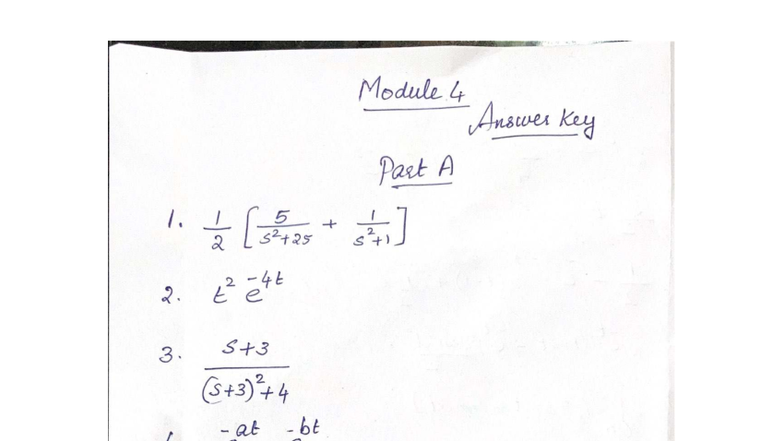 Module 4
Answer Key
Part A
1. 1/2 [ 5/(s²+25) + 1/(s²+1) ]
2. t² e^-4t
3. (s+3)/((s+3)²+4)
-at -bt